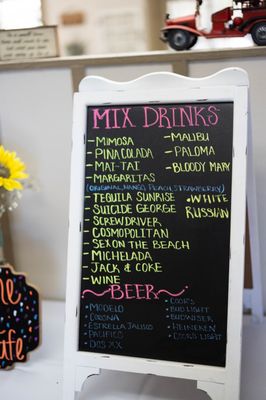 MIX DRINKS
- MIMOSA
- PINA COLADA
- MAI-TAI
- MARGARITAS
(ORIGINAL, MANGO, PEACH, STRAWBERRY)
- TEQUILA SUNRISE
- SUICIDE GEORGE
- SCREWDRIVER
- COSMOPOLITAN
- SEX ON THE BEACH
- MICHELADA
- JACK & COKE
- WINE
- MALIBU
- PALOMA
- BLOODY MARY
- WHITE
RUSSIAN
BEER
- MODELO
- CORONA
- ESTRELLA JALISCO
- PACIFICO
- DOS XX
- COORS
- BUD LIGHT
- BUDWISER
- HEINEKEN
- COORS LIGHT
ne
afe